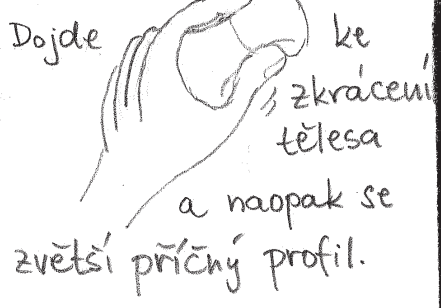 Dojde ke
zkrácení
tělesa
a naopak se
zvětší příčný profil.